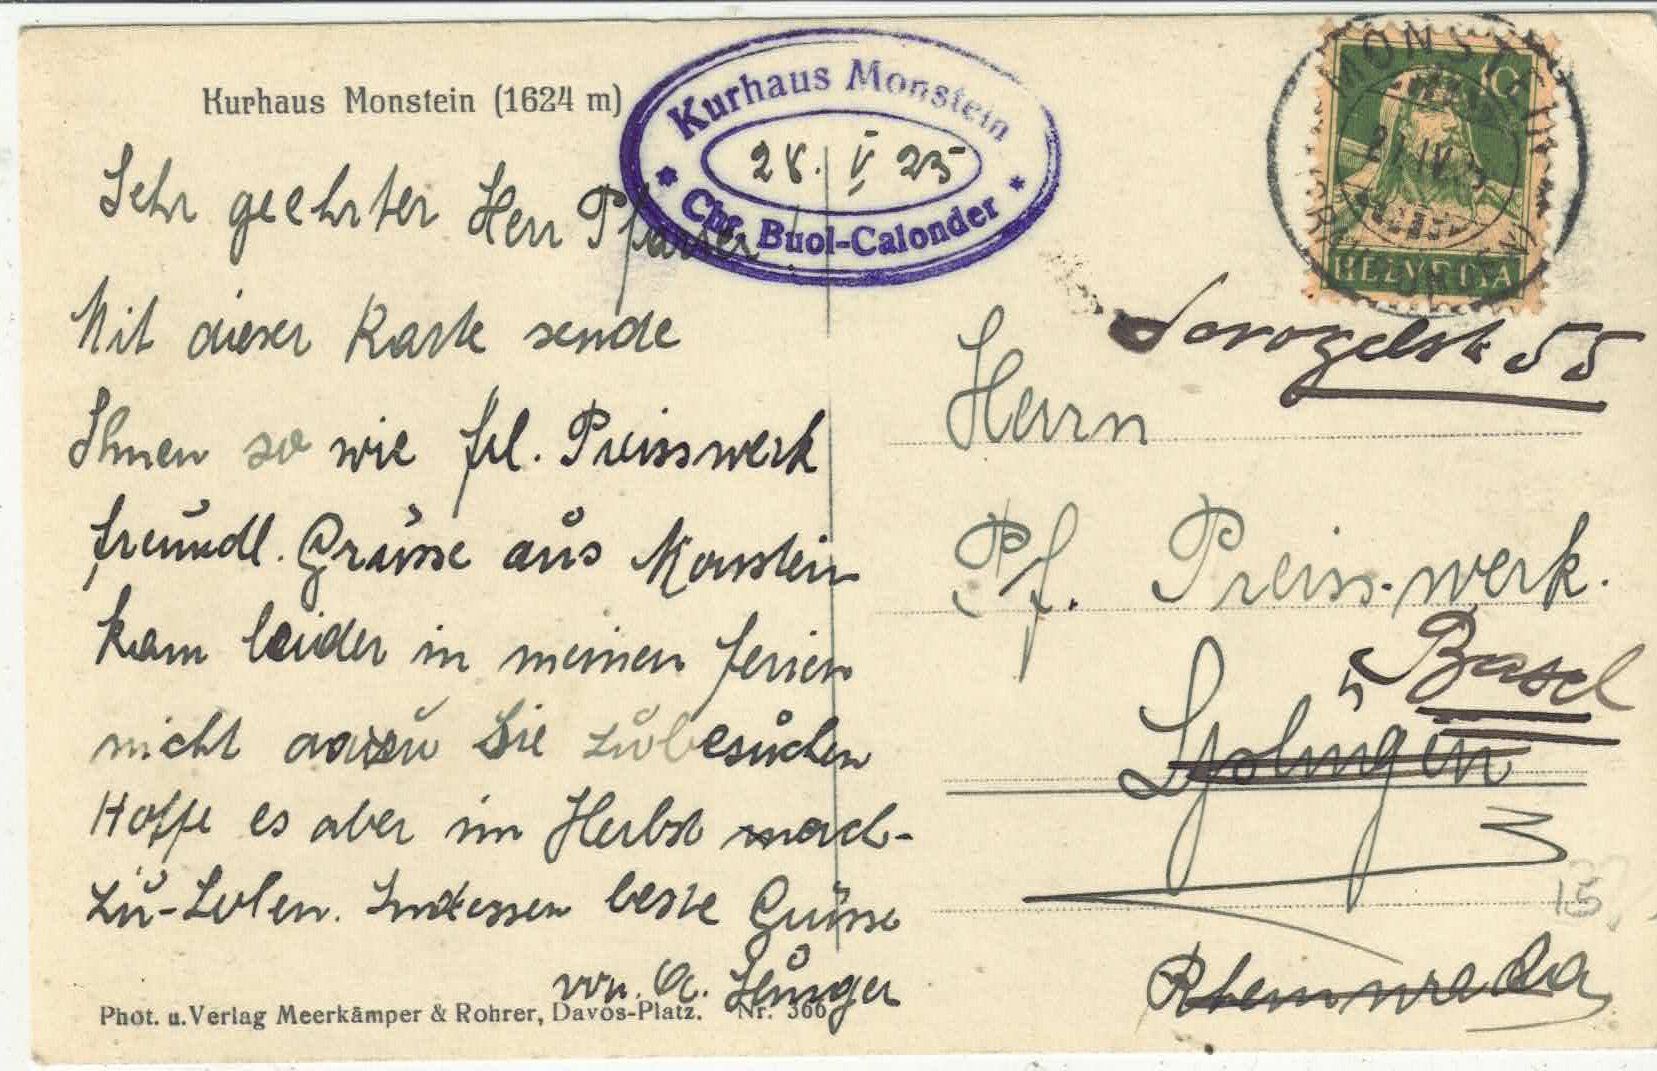 Kurhaus Monstein (1624 m)
Kurhaus Monstein
28. V 25
Chr. Buol-Calonder
MONSTEIN
HELVETIA
Sehr geehrter Herr Pfarrer!
Mit dieser Karte sende
Ihnen so wie Frl. Preisswerk
freundl. Grüsse aus Monstein
kam leider in meinen Ferien
nicht dazu Sie zu besuchen
Hoffe es aber im Herbst nach-
zu-holen. Indessen beste Grüsse
von
Phot. u. Verlag Meerkämper & Rohrer, Davos-Platz. Nr. 366
55
Herrn
Pf. Preiss-werk.
Basel
15